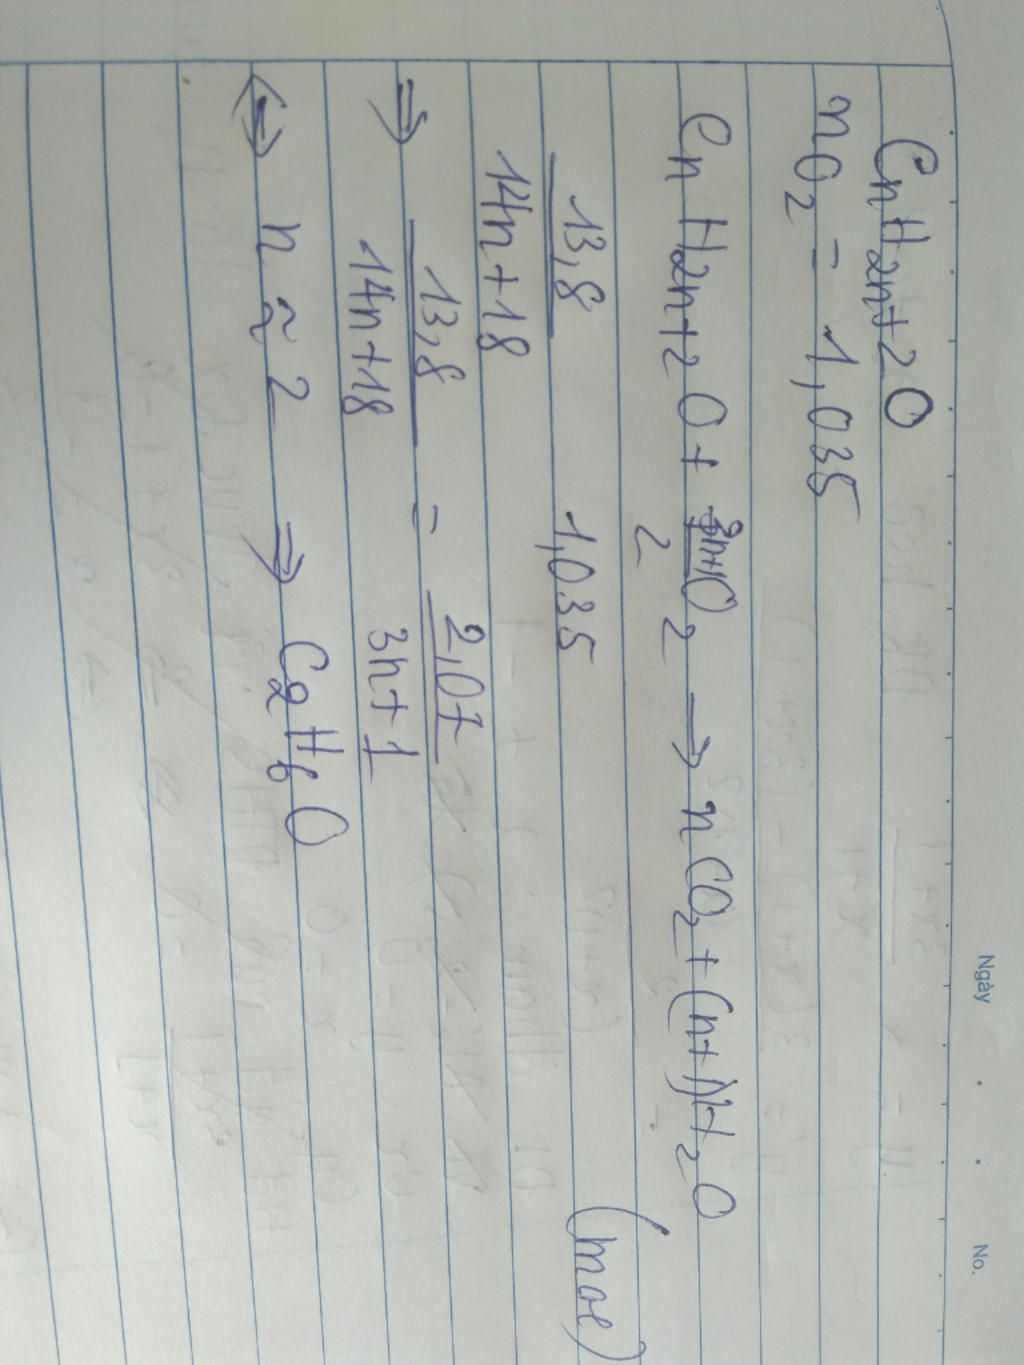 Ngày
No.
CnH2n+2O
nO2 = 1,035
CnH2n+2O + 3n/2 O2 → nCO2 + (n+1)H2O
13,8/14n+18 1,035 (mol)
⇒ 13,8/14n+18 = 2,07/3n+1
⇔ n ≈ 2 ⇒ C2H6O